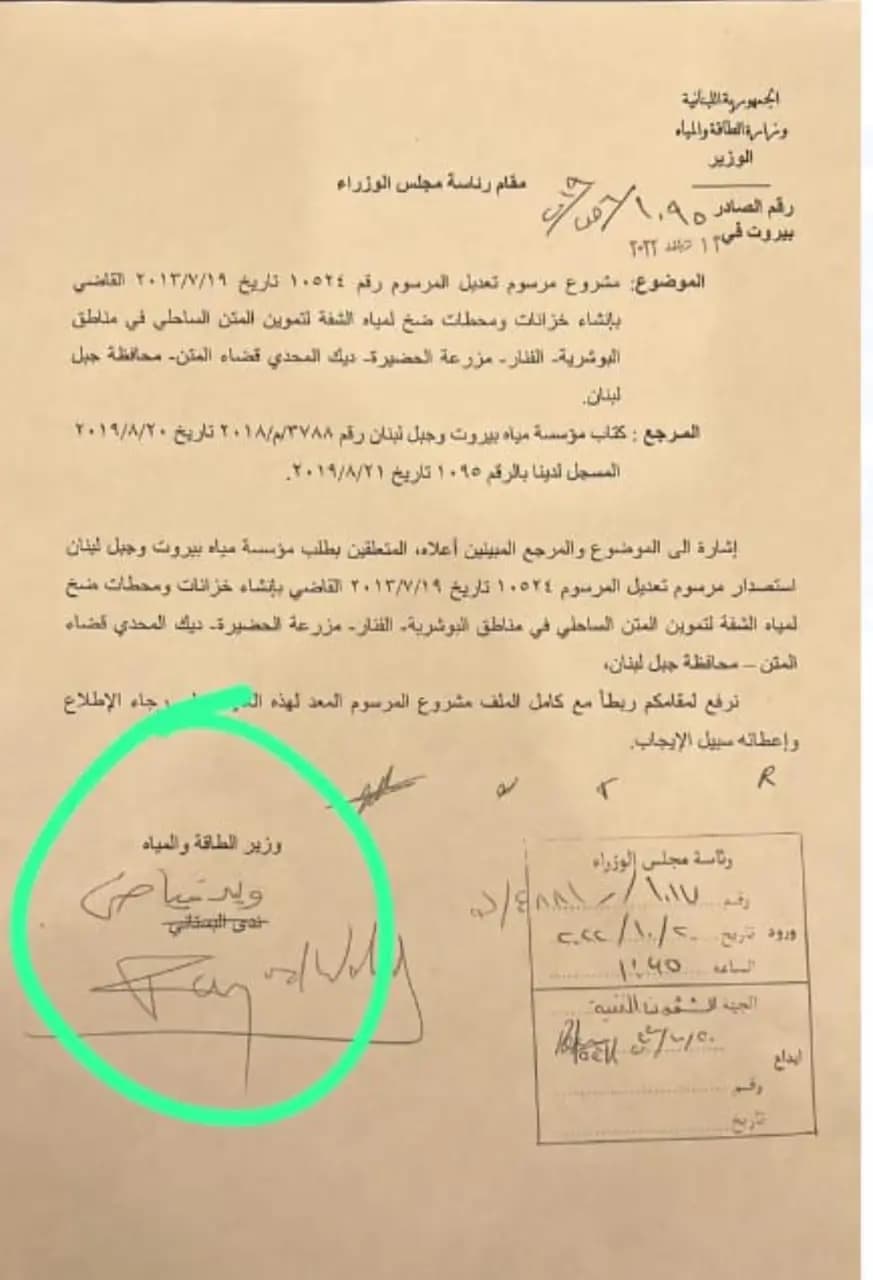 الجمهورية اللبنانية
وزارة الطاقة والمياه
الوزير
مقام رئاسة مجلس الوزراء
رقم الصادر
بيروت في ٢٠٢٢
الموضوع: مشروع مرسوم تعديل المرسوم رقم ١٠٥٢٤ تاريخ ٢٠١٣/٧/١٩ القاضي
بإنشاء خزانات ومحطات ضخ لمياه الشفة لتموين المتن الساحلي في مناطق
البوشرية- الفنار- مزرعة الحضيرة- ديك المحدي قضاء المتن- محافظة جبل
لبنان.
المرجع : كتاب مؤسسة مياه بيروت وجبل لبنان رقم ٣٧٨٨/م/٢٠١٨ تاريخ ٢٠١٩/٨/٢٠
المسجل لدينا بالرقم ١٠٩٥ تاريخ ٢٠١٩/٨/٢١.
إشارة الى الموضوع والمرجع المبينين أعلاه، المتعلقين بطلب مؤسسة مياه بيروت وجبل لبنان
استصدار مرسوم تعديل المرسوم ١٠٥٢٤ تاريخ ٢٠١٣/٧/١٩ القاضي بإنشاء خزانات ومحطات ضخ
لمياه الشفة لتموين المتن الساحلي في مناطق البوشرية- الفنار- مزرعة الحضيرة- ديك المحدي قضاء
المتن – محافظة جبل لبنان،
نرفع لمقامكم ربطاً مع كامل الملف مشروع المرسوم المعد لهذه رجاء الإطلاع
وإعطائه سبيل الإيجاب.
R
وزير الطاقة والمياه
وليد فياض
ندى البستاني
رئاسة مجلس الوزراء
رقم
ورود تاريخ ٢٠٢٢/١٠/٢٠
الساعة
الجهة الشؤون الفنية
ايداع
رقم
تاريخ